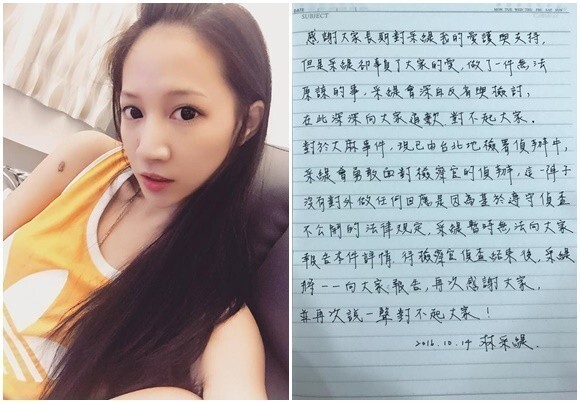 DATE
MON TUE WED THU FRI SAT SUN
SUBJECT
感謝大家長期對采緹我的愛護與支持,
但是采緹卻辜負了大家的愛,做了一件無法
原諒的事,采緹會深自反省與檢討,
在此深深向大家道歉,對不起大家.
對於大麻事件,現已由台北地檢署偵辦中,
采緹會勇敢面對檢察官的偵辦,這一陣子
沒有對外做任何回應是因為基於遵守偵查
不公開的法律規定,采緹暫時無法向大家
報告本件詳情.待檢察官偵查結束後,采緹
將一一向大家報告,再次感謝大家,
並再次說一聲對不起大家!
2016.10.14 林采緹.